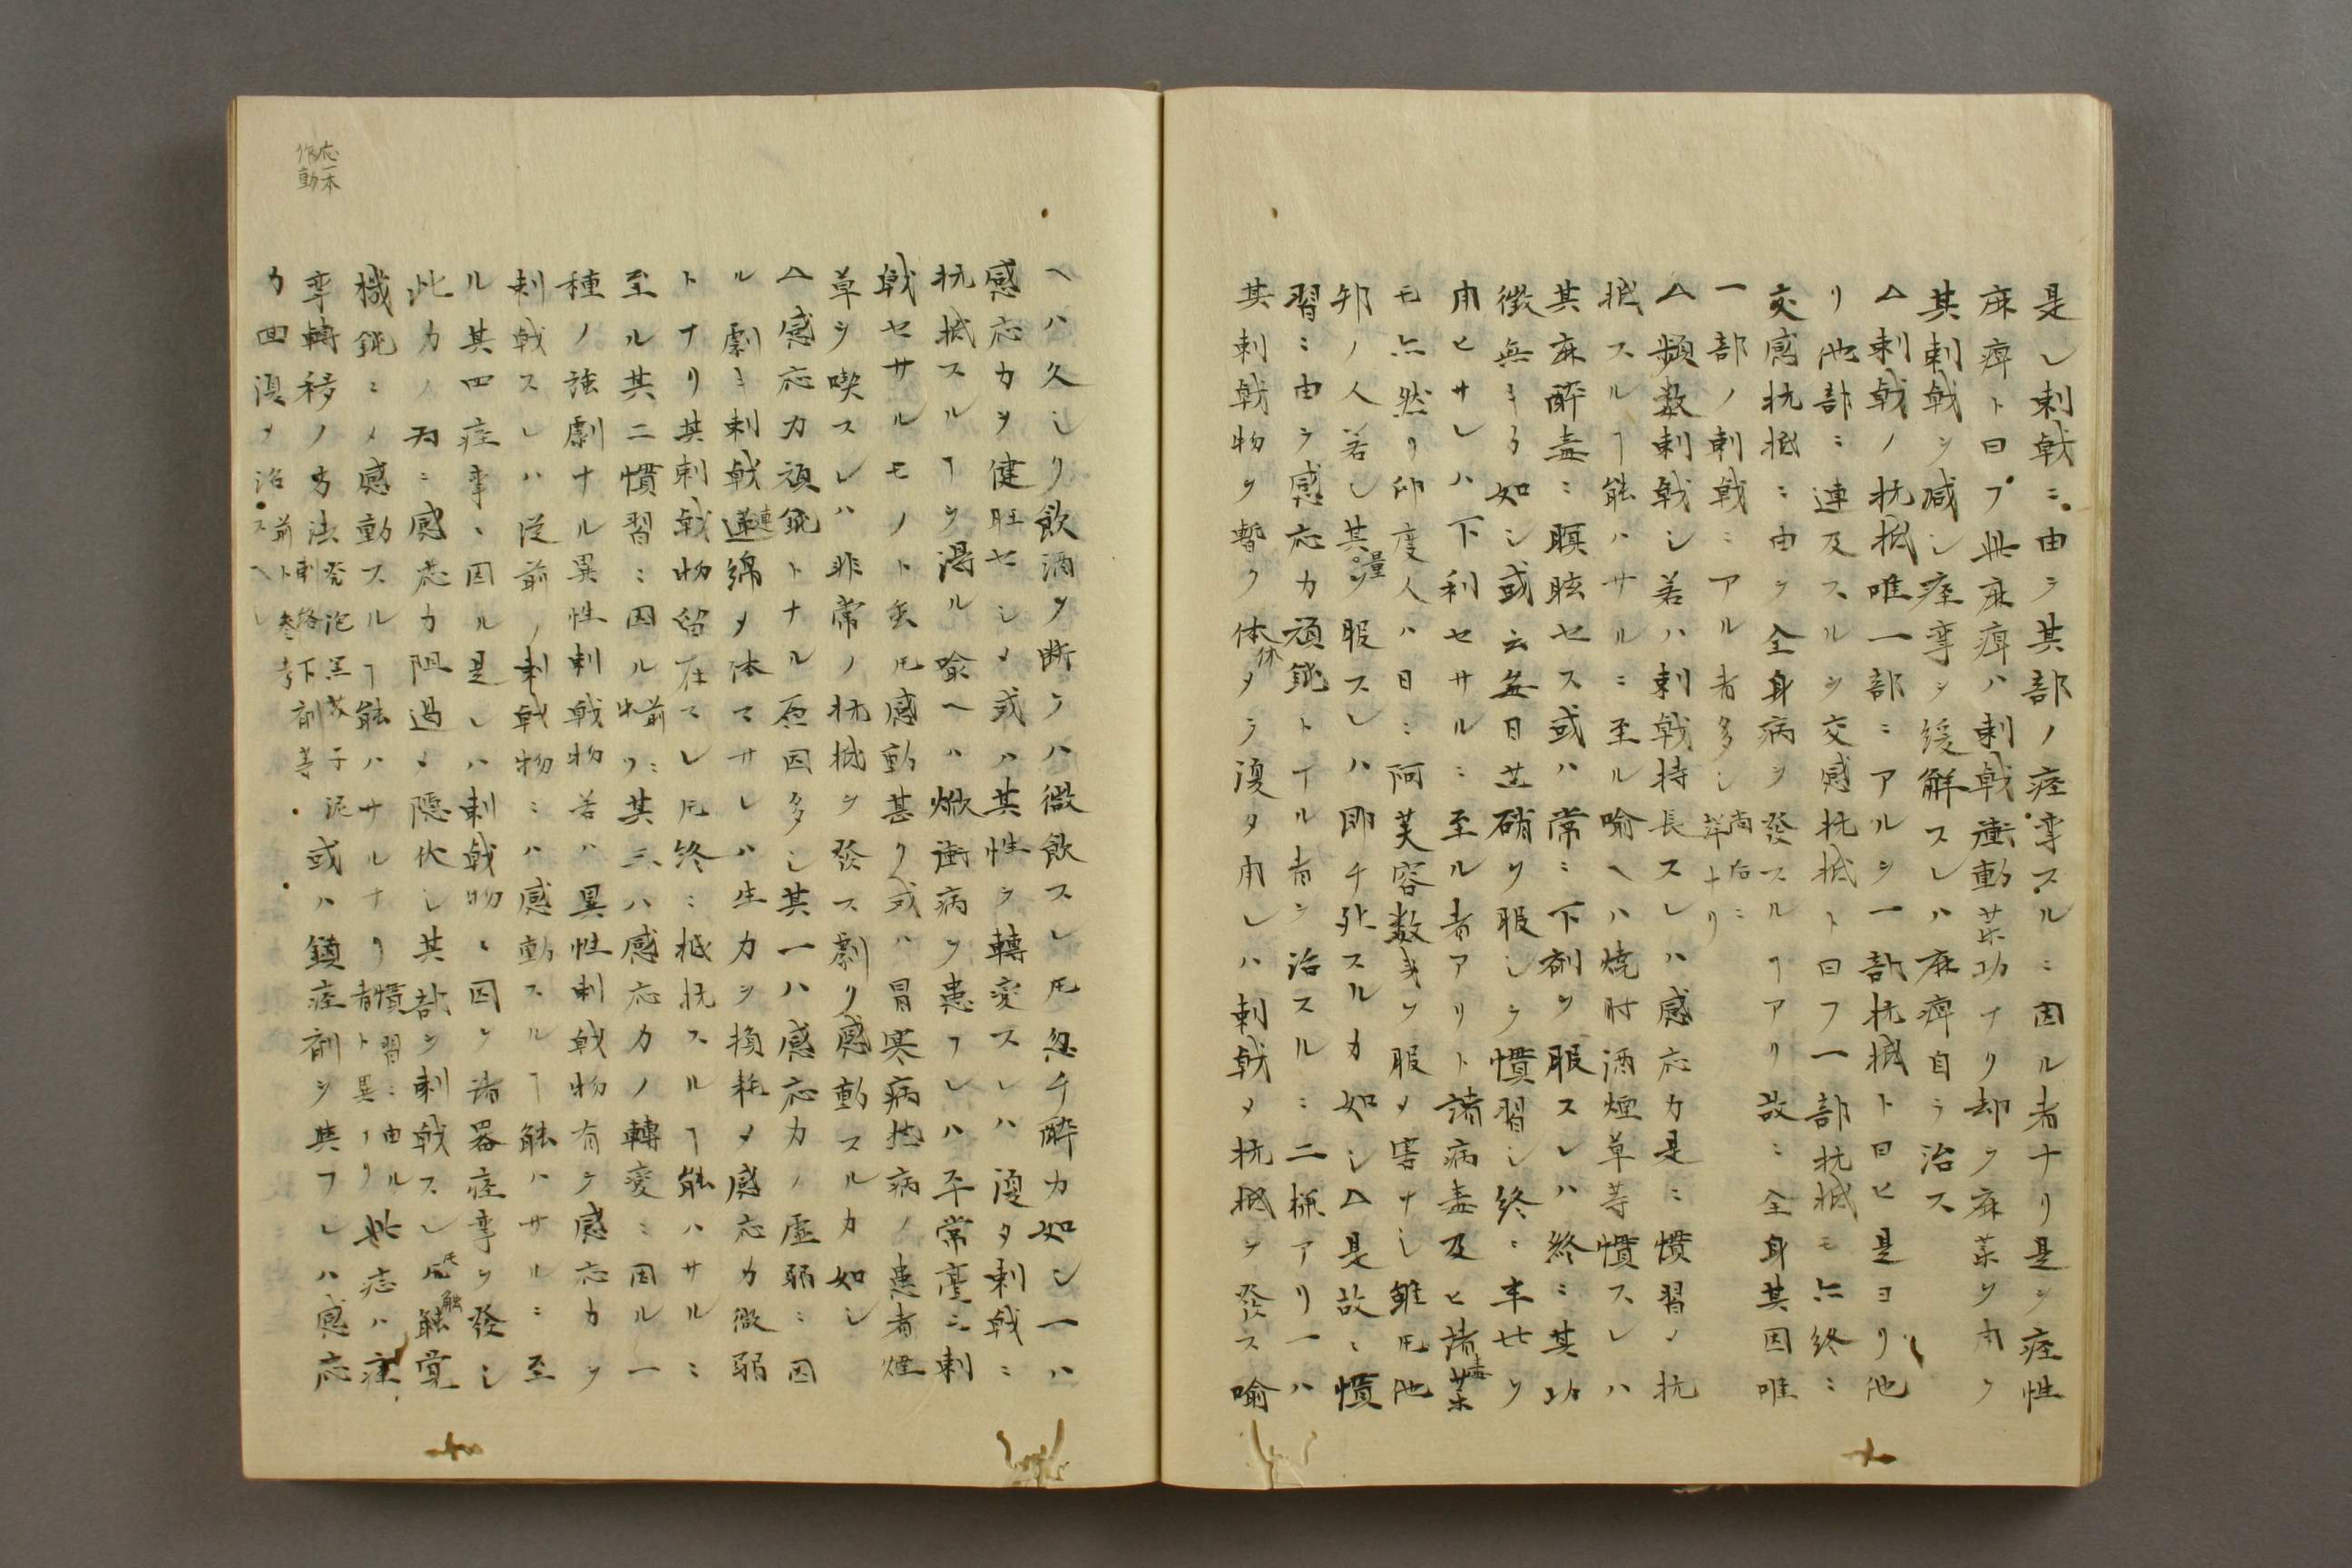 是レ刺戟ニ由テ其部ノ痙攣スルニ因ル者ナリ是ヲ痙性
麻痺ト曰フ此麻痺ハ刺戟衝動薬功ナリ却テ麻薬ヲ用ヒテ
其刺戟ヲ減シ痙攣ヲ緩解スレハ麻痺自ラ治ス
△刺戟ノ抗抵唯一部ニアルヲ一部抗抵ト曰ヒ是ヨリ他
リ他部ニ連及スルヲ交感抗抵ト曰フ一部抗抵モ亦終ニ
交感抗抵ニ由テ全身病ヲ發スルヿアリ故ニ全身其因唯
一部ノ刺戟ニアル者多シ
△頻数刺戟シ若ハ刺戟持長スレハ感応力是ニ慣習ノ抗
抵スルヿ能ハサルニ至ル喻ヘハ焼酎酒煙草等慣スレハ
其麻醉毒ニ瞑眩セス或ハ常ニ下剤ヲ服スレハ終ニ其功
徴無キカ如シ或云毎日芒硝ヲ服シテ慣習シ終ニ半斤ヲ
用ヒサレハ下利セサルニ至ル者アリト諸病毒及ヒ諸薬毒
モ亦然リ印度人ハ日ニ阿芙容数銭ヲ服メ害ナシ雖𪜈他
邦ノ人若シ其量ヲ服スレハ即チ死スルカ如シ△是故ニ慣
習ニ由テ感応力頑鈍トナル者ヲ治スルニ二種アリ一ハ
其刺戟物ヲ暫ク休メテ復タ用レハ刺戟メ抗抵ヲ發ス喻
ヘハ久シク飲酒ヲ断テハ微飲スレ𪜈忽チ醉カ如シ一ハ
感応力ヲ健旺セシメ或ハ其性ヲ轉変スレハ復タ刺戟ニ
抗抵スルヿヲ得ル喻ヘハ焮衝病ヲ患フレハ平常毫モ刺
戟セサルモノト雖𪜈感動甚リ或ハ冒寒病他病ノ患者煙
草ヲ喫スレハ非常ノ抗抵ヲ發ス劇リ感動スルカ如シ
△感応力頑鈍トナル原因多シ其一ハ感応力ノ虚弱ニ因
ル劇キ刺戟連綿メ休マサレハ生力ヲ損耗メ感応力微弱
トナリ其刺戟物留在スレ𪜈終ニ抵抗スルヿ能ハサルニ
至ル其二慣習ニ因ル前ニ出ツ其三ハ感応力ノ轉変ニ因ル一
種ノ強劇ナル異性刺戟物若ハ異性刺戟物有テ感応力ヲ
刺戟スレハ從前ノ刺戟物ニハ感動スルヿ能ハサルニ至
ル其四痙攣ニ因ル是レハ刺戟物ニ因テ諸器痙攣ヲ發シ
此力ノ為ニ感応力阻遏メ隠伏シ其部ヲ刺戟スレ𪜈触覚
機鈍ニメ感動スルヿ能ハサルナリ慣習ニ由ル者ト異ナリ此症ハ痙
攣轉移ノ方法 發泡 芥子泥 刺絡 下剤等 或ハ鎮痙剤ヲ與フレハ感応
力回復メ治ス 前ト参考スヘシ
応一本
作動